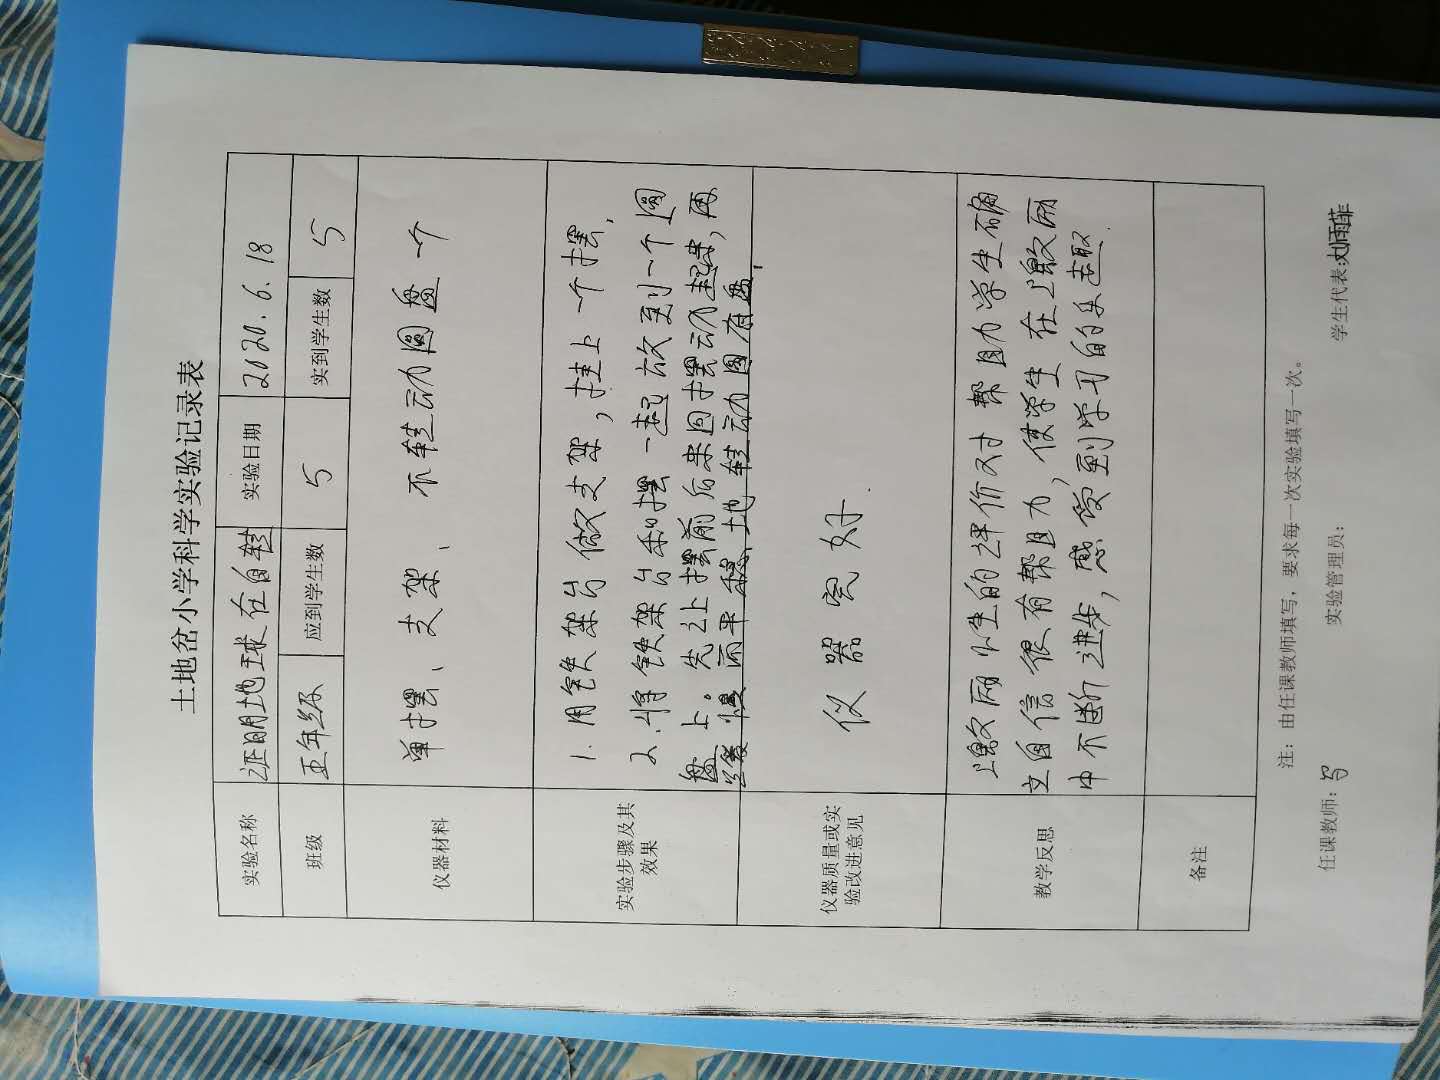 土地岔小学科学实验记录表
实验名称 证明地球在自转 实验日期 2020.6.18
班级 五年级 应到学生数 5 实到学生数 5
仪器材料 单摆、支架、不转动圆盘一个
实验步骤及其效果
1.用铁架台做支架,挂上一个摆,
2.将铁架台和摆一起放到一个圆
盘上。先让摆前后来回摆动起来,再
缓慢而平稳地转动圆盘,
仪器质量或实验改进意见 仪器完好.
教学反思
激励性的评价对帮助学生确
立自信很有帮助,使学生在上激励
中不断进步,感受到学习的乐趣.
备注
注:由任课教师填写,要求每一次实验填写一次。
任课教师: 实验管理员: 学生代表:刘雨菲